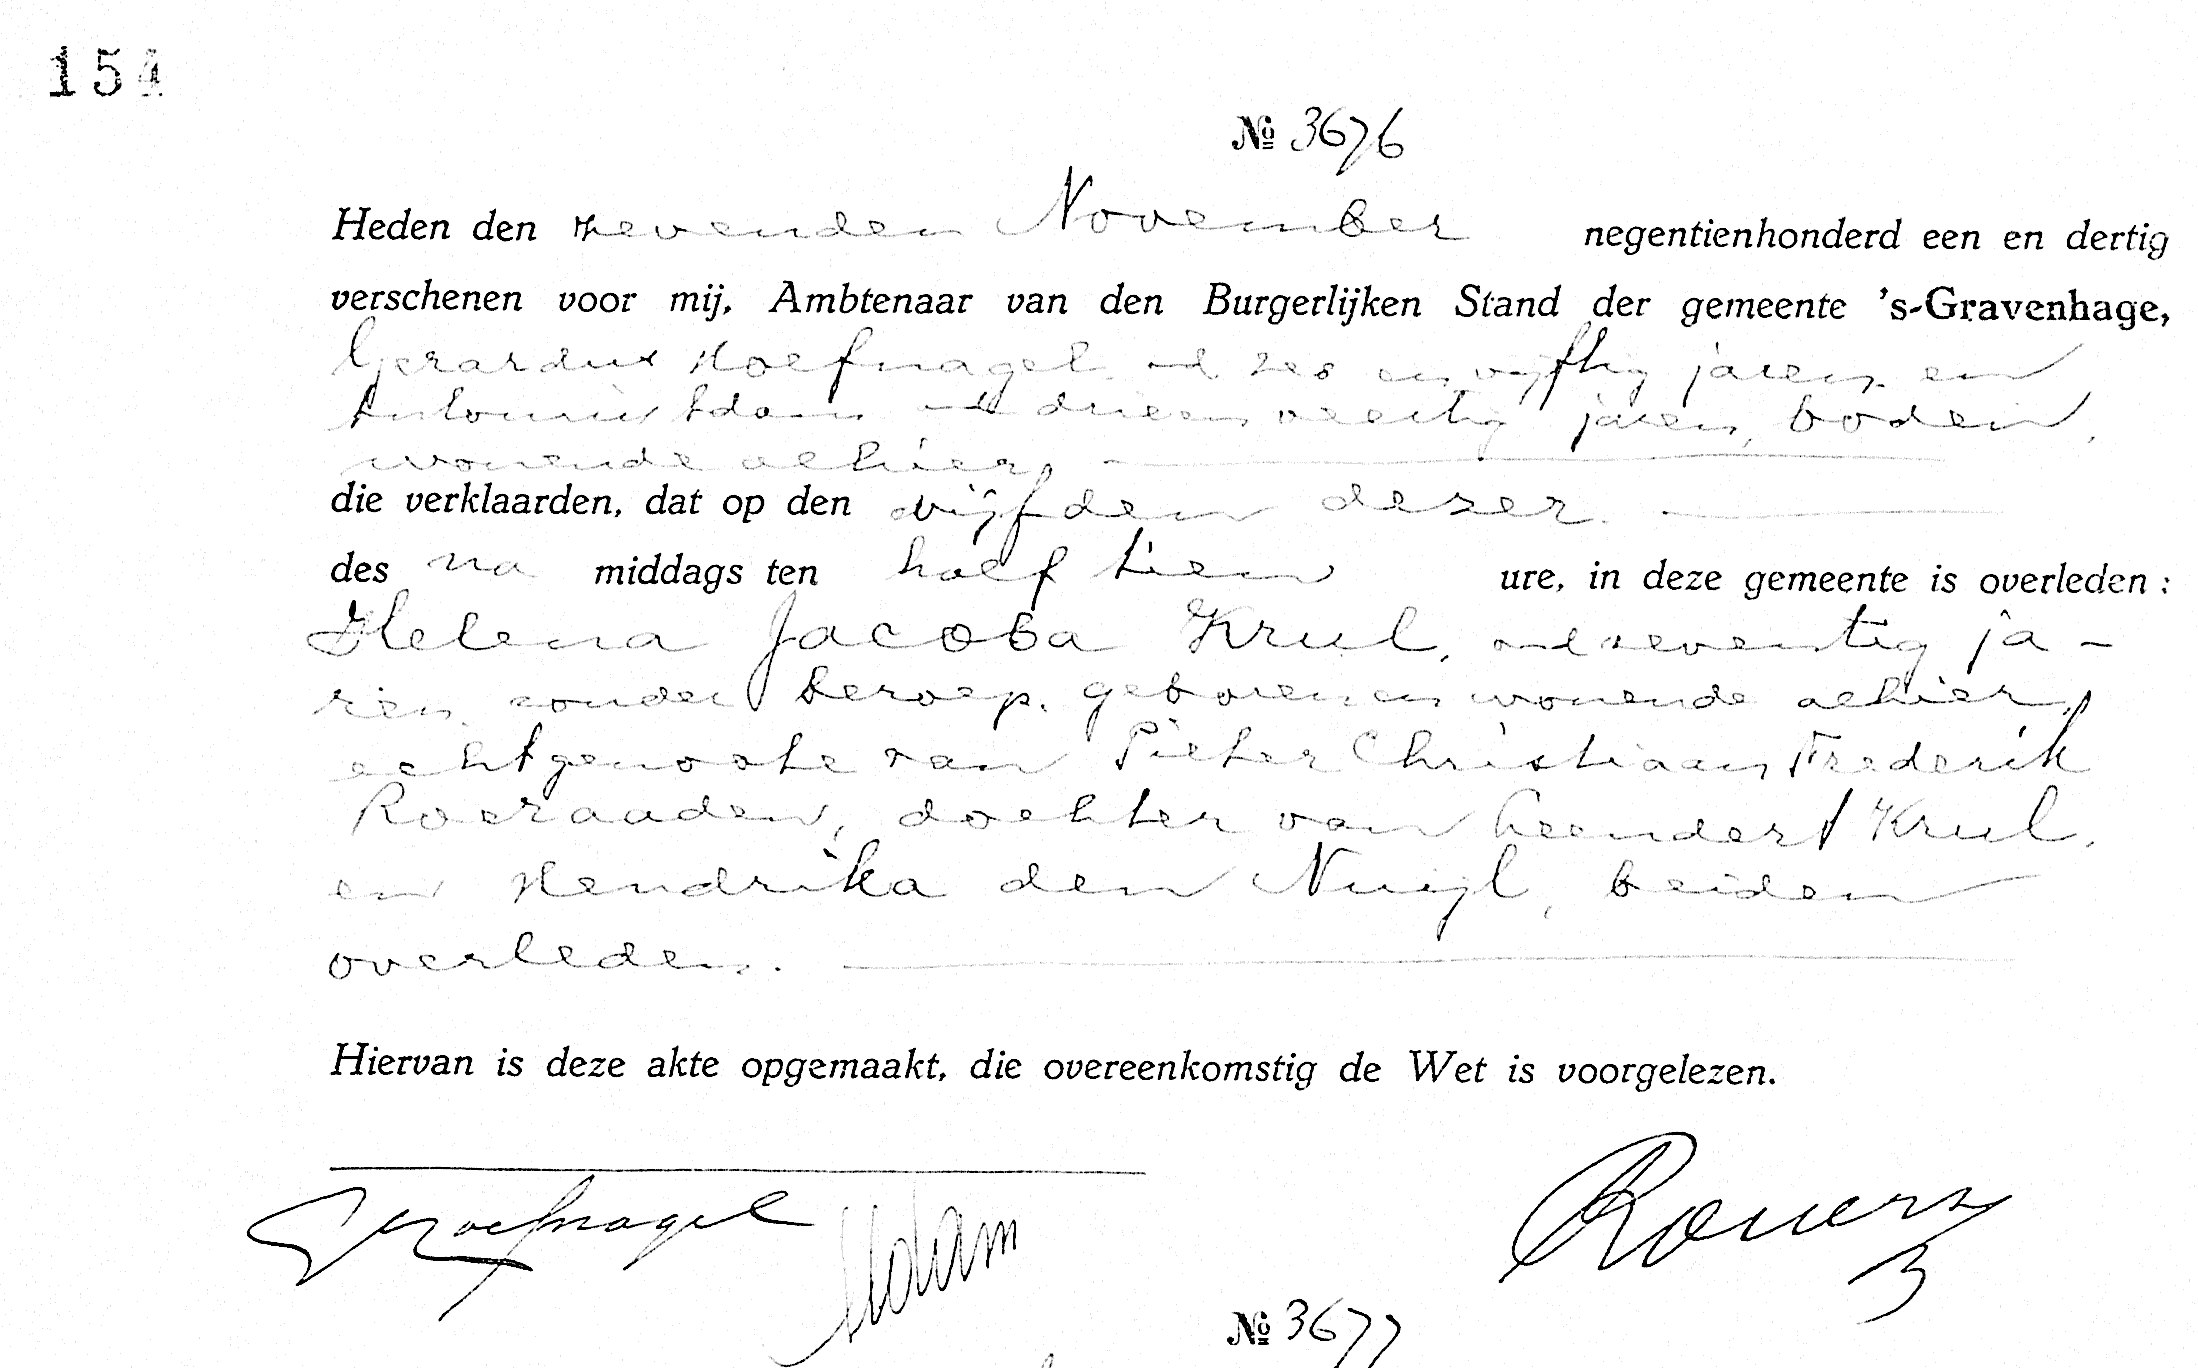 154
№ 3676
Heden den zevenden November negentienhonderd een en dertig
verschenen voor mij, Ambtenaar van den Burgerlijken Stand der gemeente 's-Gravenhage,
Gerardus Hoefnagel, oud zes en vijftig jaren en
Antonius Adam oud drie en veertig jaren, boden,
wonende alhier,
die verklaarden, dat op den vijfden dezer.
des na middags ten half tien ure, in deze gemeente is overleden:
Helena Jacoba Krul, oud zeventig ja-
ren, zonder beroep, geboren en wonende alhier,
echtgenoote van Pieter Christiaan Frederik
Roeraaden, dochter van Leendert Krul,
en Hendrika den Nuijl, beiden
overleden.
Hiervan is deze akte opgemaakt, die overeenkomstig de Wet is voorgelezen.
GHoefnagel Adam
№ 3677